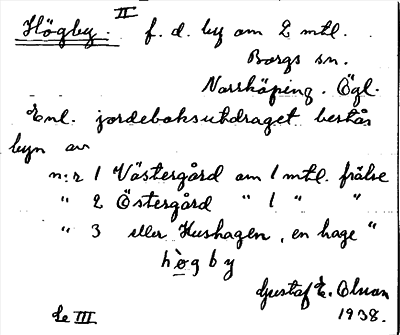 Högby. II f. d. by om 2 mtl.
Borgs sn.
Norrköping. Ögl.
Enl. jordeboksutdraget består
byn av
n:r 1 Västergård om 1 mtl. frälse
" 2 Östergård " 1 " "
" 3 eller Hushagen, en hage "
högby
Gustaf E. Olsson
Se III 1938.